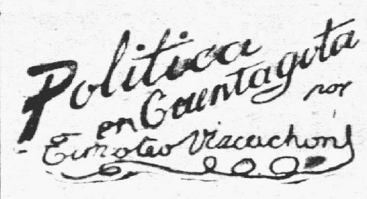 Politica
en Cuentagota
por
Eimoteo Vizcachon